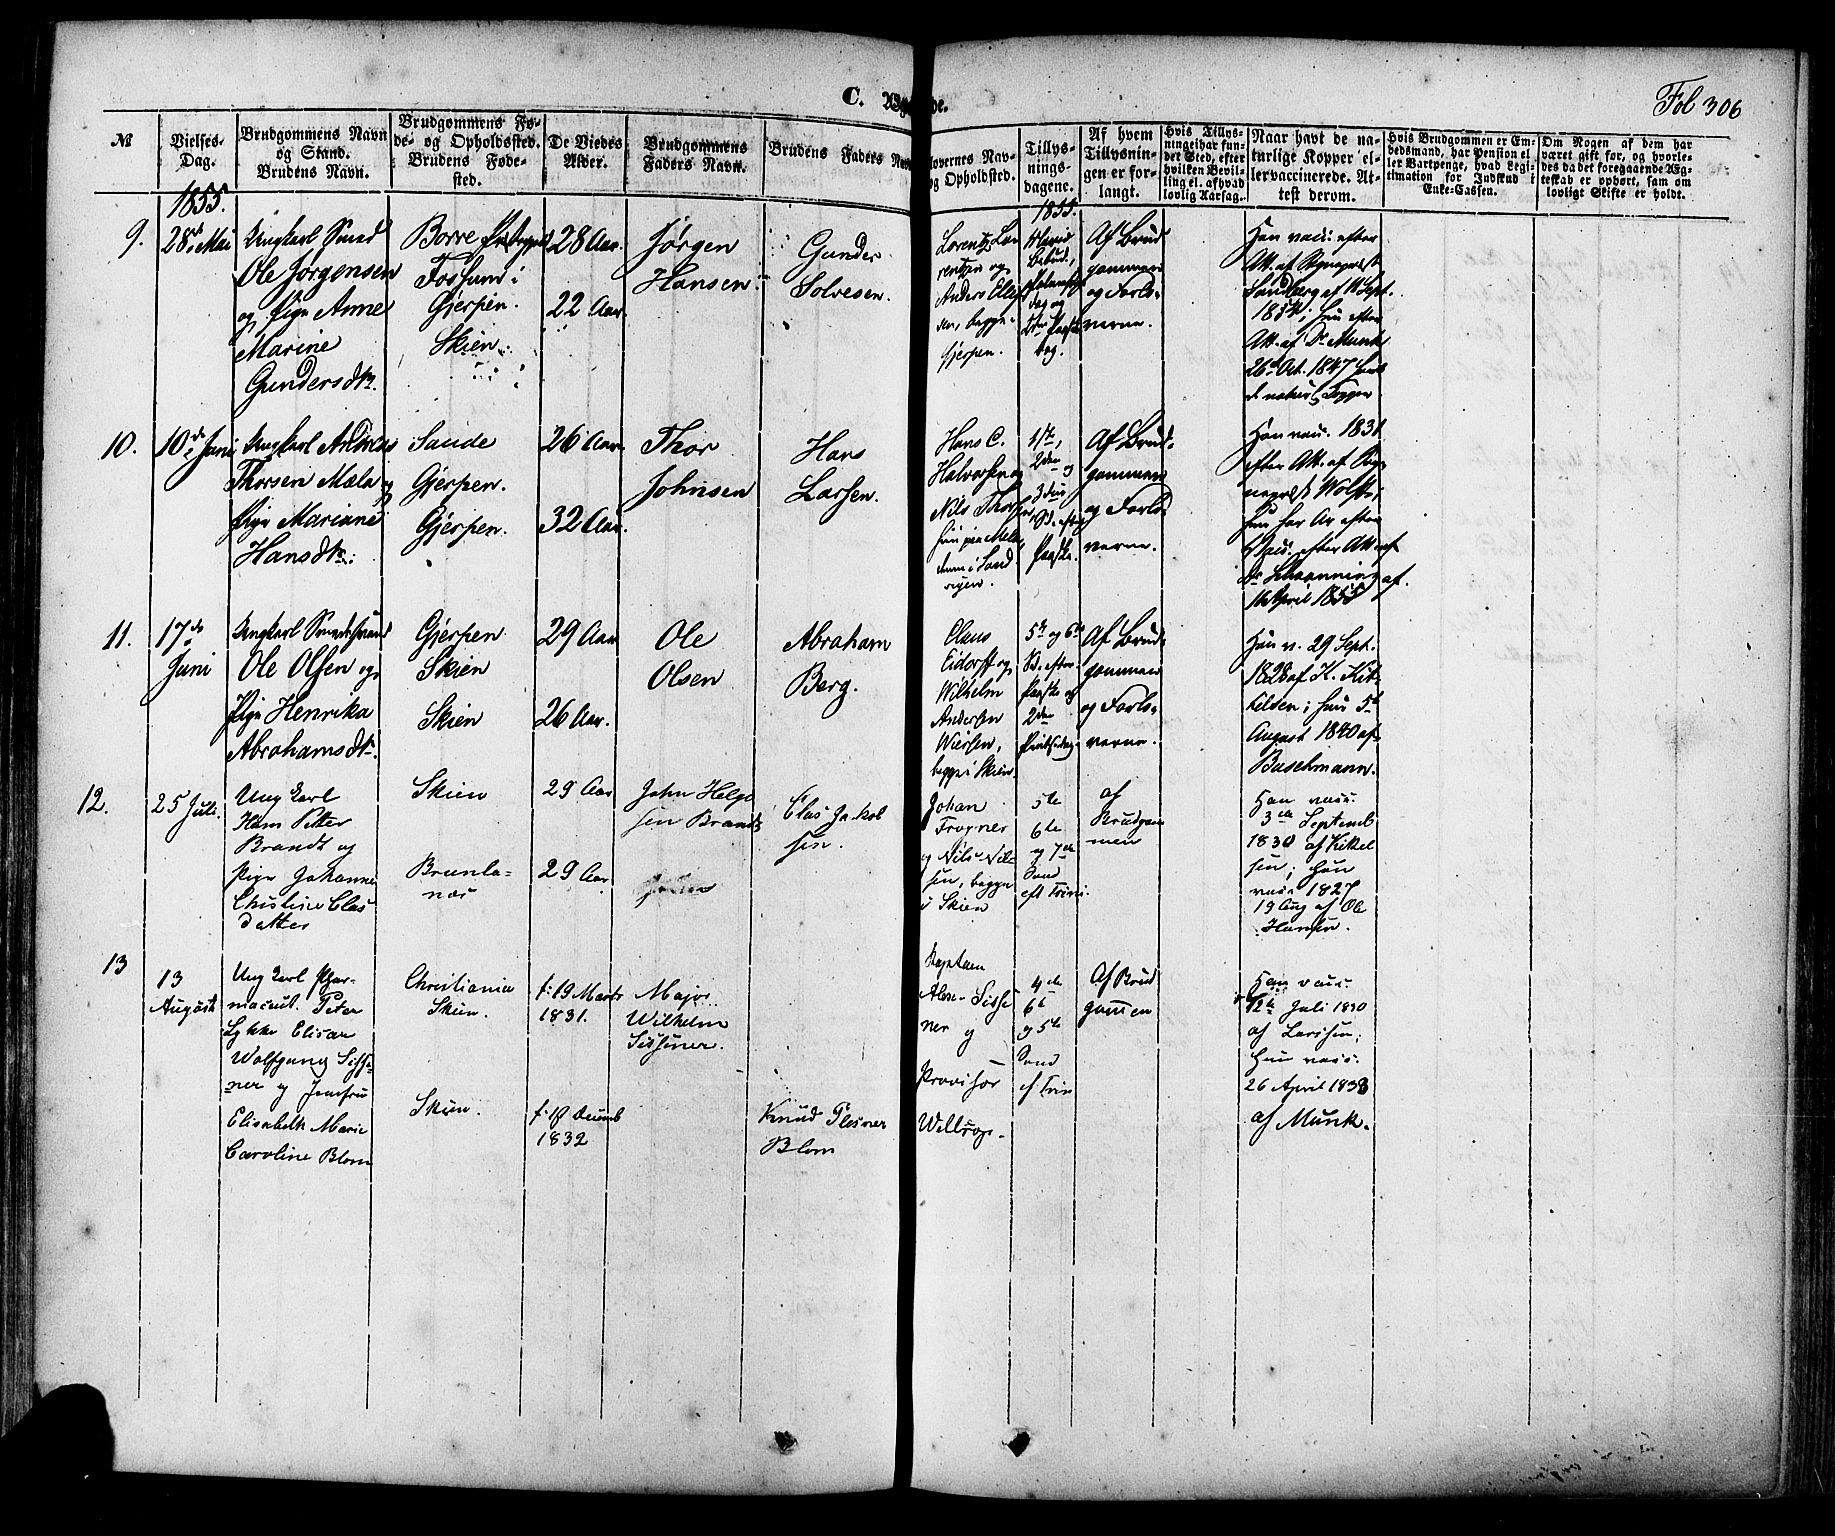 C. Vigede.
Fol 306
№
Vielses-
Dag.
Brudgommens Navn
og Stand.
Brudens Navn.
Brudgommens Fø-
de- og Opholdssted.
Brudens Føde-
sted.
De Viedes
Alder.
Brudgommens
Faders Navn.
Brudens Faders Navn
Forlovernes Nav-
og Opholdsted.
Tillys-
nings-
dagene.
Af hvem
Tillysnin-
gen er for-
langt.
Hvis Tillys-
ning ei har fun-
det Sted, efter
hvilken Bevil-
ling el. af hvad
lovlig Aarsag.
Naar havt de na-
turlige Kopper el-
ler vaccinerede. At-
test derom.
Hvis Brudgommen er Em-
bedsmand, har Pension el-
ler Vartpenge, hvad Legi-
timation for Indskud i
Enke-Cassen.
Om Nogen af dem har
været gift før, og hvorle-
des da det foregaaende Æg-
teskab er ophørt, sam om
lovligt Skifte er holdt.
1855.
1855.
9.
28de Mai
Ungkarl Smed
Ole Jørgensen
og Pige Anne
Marine
Gundersdtr.
Borre
Fossum i
Gjerpen.
Skien.
28 Aar.
22 Aar.
Jørgen
Hansen.
Gunder
Solvesen.
Lorentz Lo-
rentzen og
Anders
begge i
Gjerpen.
Af Brud-
gommen
og Forlo-
verne.
Han vacc. efter
Att. af Sognepræst
Sandberg af 11 Sept.
1834; hun efter
Att. af Dr Munk
26de Oct. 1847 havt
de naturl. Kopper.
10.
10de Juni
Ungkarl Andreas
Thorsen Mæla og
Pige Mariane
Hansdtr.
Saude
Gjerpen.
Gjerpen.
26 Aar.
32 Aar.
Thor
Johnsen
Hans
Larsen.
Hans C.
Halvorsen og
Nils Thorsen
1ste,
2den og
3die
S. efter
Paaske.
Af Brud-
gommen
og Forlo-
verne.
Han vacc. 1831
efter Att. af Sog-
nepræst Wolff;
hun har Ar efter
Vacc. efter Att. af
Dr Schaanning af
16 April 1855
11.
17de
Juni
Ungkarl
Ole Olsen og
Pige Henrika
Abrahamsdtr.
Gjerpen
Skien
Skien
29 Aar
26 Aar.
Ole
Olsen
Abraham
Berg.
Claus
Eidorff og
Wilhelm
Andersen
begge i Skien.
5te og 6te
S. efter
Paaske og
2den
Pintsedag.
Af Brud-
gommen
og Forlo-
verne.
Han v. 29 Sept.
1828 af K. Kit-
tilsen; hun 5te
August 1840 af
Buschmann.
12.
25 Juli.
Ung karl
Hans Petter
Brandt og
Pige Johanne
Christine Clas
datter
Skien
Brunla-
næs
29 Aar
29 Aar
John Helge
sen Brandt
Clas Jakob
sen.
Johan
Frogner
og Nils Nil-
sen, begge
i Skien
5te
6te
og 7de
Sønd
eft Trini.
af
Brudgom
men
Han vacc.
3de Septemb
1830 af Kittel
sen; hun
vacc. 1827
19 Aug af Ole
Hansen.
13
13
August
Ung karl Phar-
maceut. Peter
Lykke Elisar
Wolfgang Siss-
ner og Jomfru
Elisabeth Marie
Caroline Blom
Christiania
Skien.
Skien.
f: 19 Marts
1831.
f: 18 Decemb
1832
Major
Wilhelm
Sissener.
Knud Plesner
Blom
Kaptain
Alex. Sisse
ner og
Provisor
4de
6te
og 5te
Sønd
ef Trin
Af Brud
gommen
Han vacc.
12te Juli 1830
af Larssen;
hun vacc.
26 April 1838
af Munk.